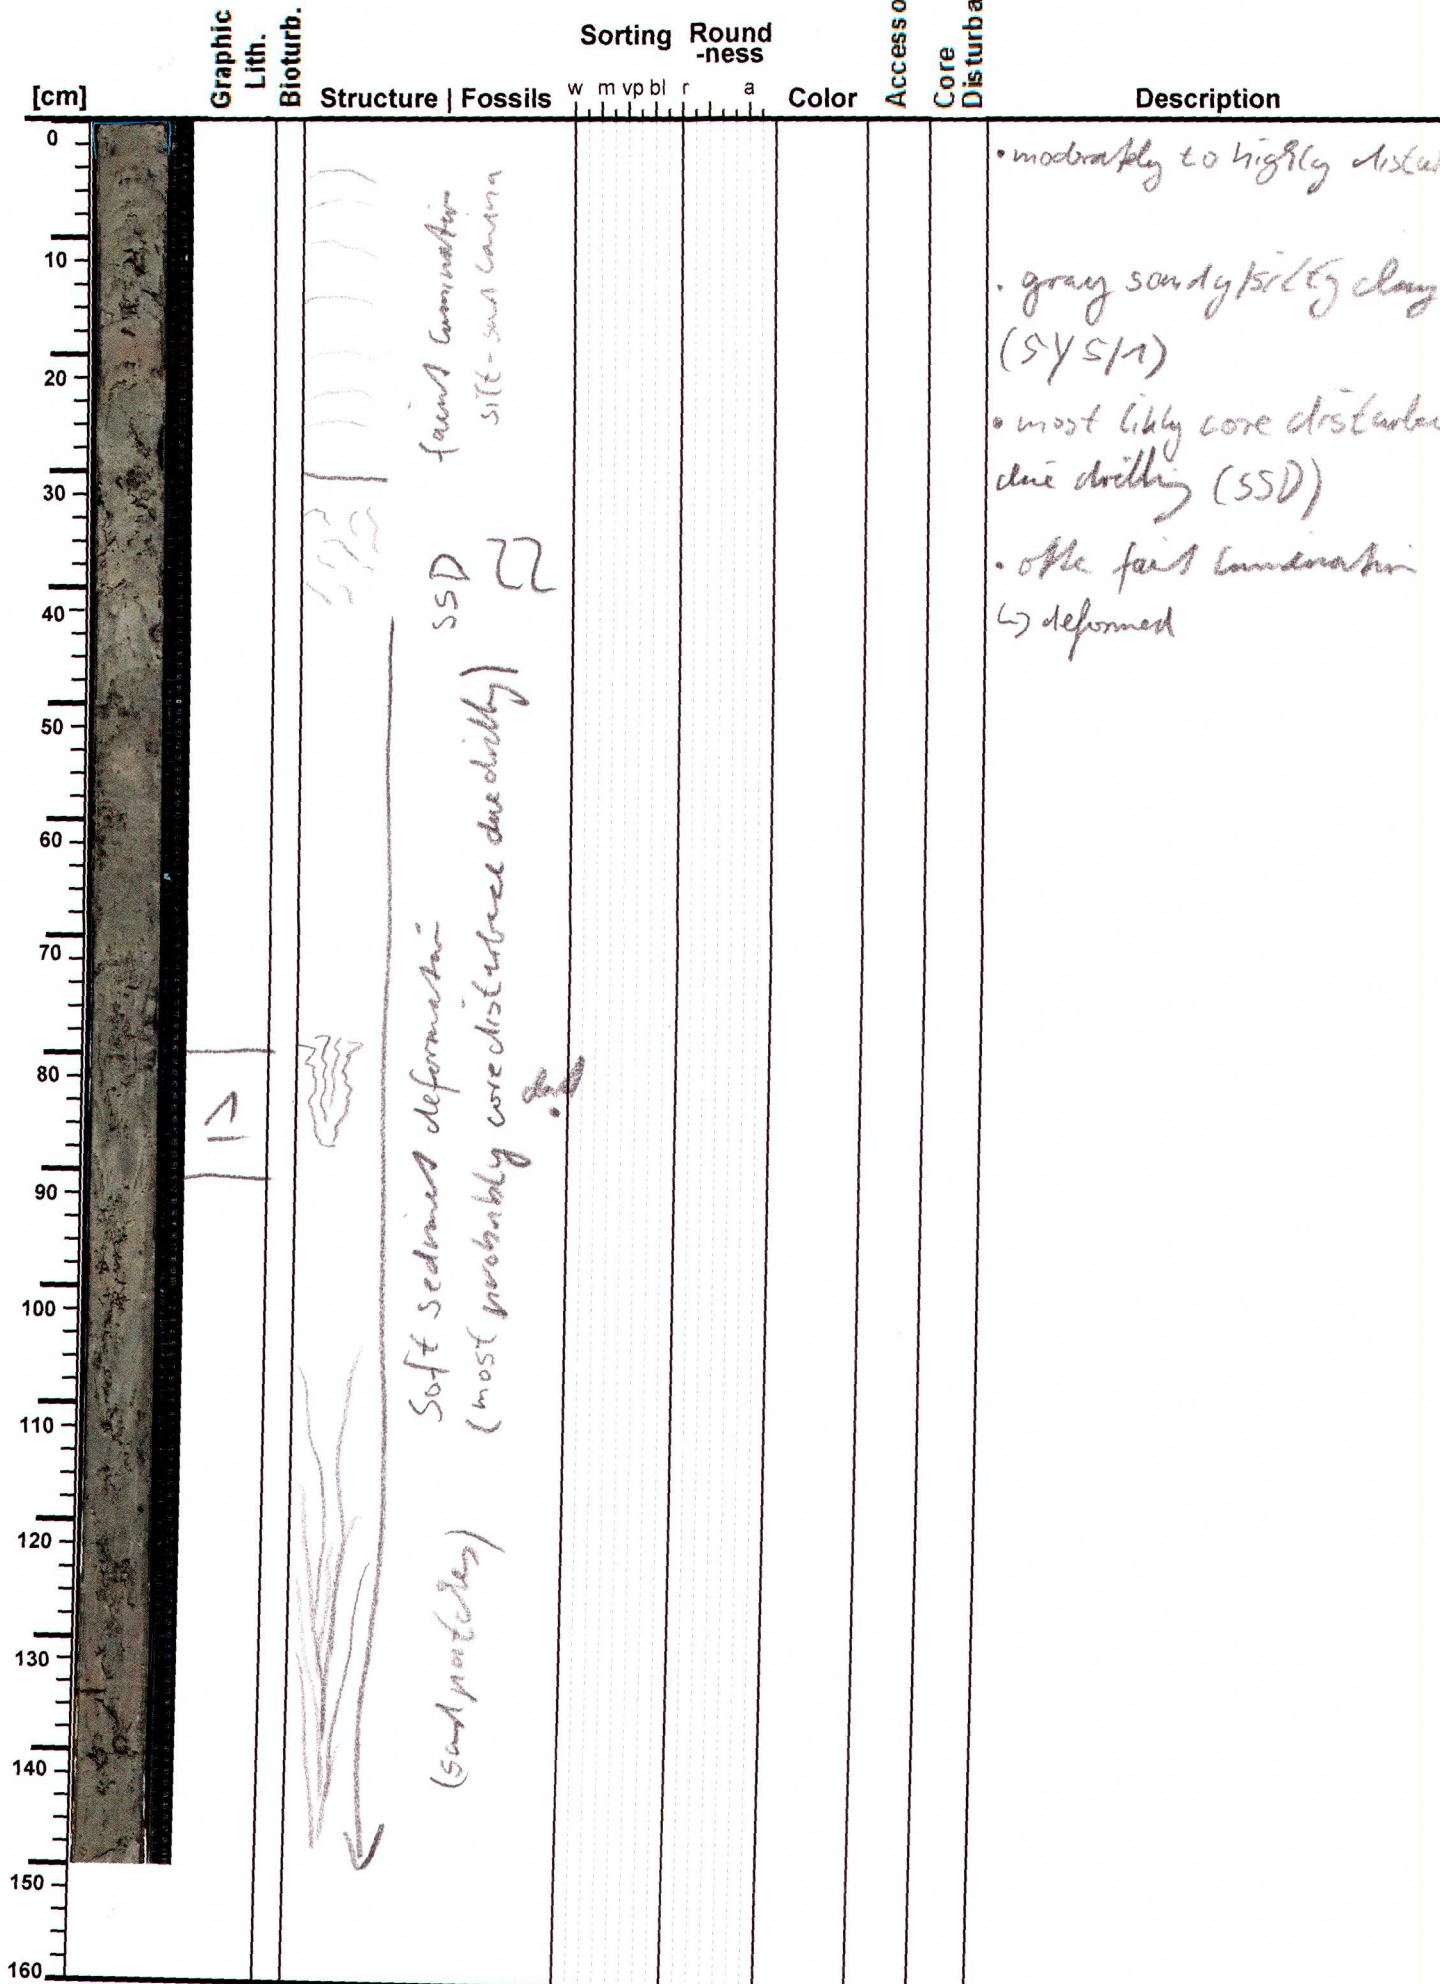 [cm]
Graphic
Lith.
Bioturb.
Structure | Fossils
Sorting
Round
-ness
w m vp bl r a
Color
Accesso
Core
Disturba
Description
0
10
20
30
40
50
60
70
80
90
100
110
120
130
140
150
160
faint lamination
silt-sand lamina
SSD
Soft sediment deformation
(most probably core disturbance due drilling)
(sand patches)
• moderately to highly distu
• gray sandy/silty clay
(5Y 5/1)
• most likly core disturba
due drilling (SSD)
• faint lamination
↳ deformed